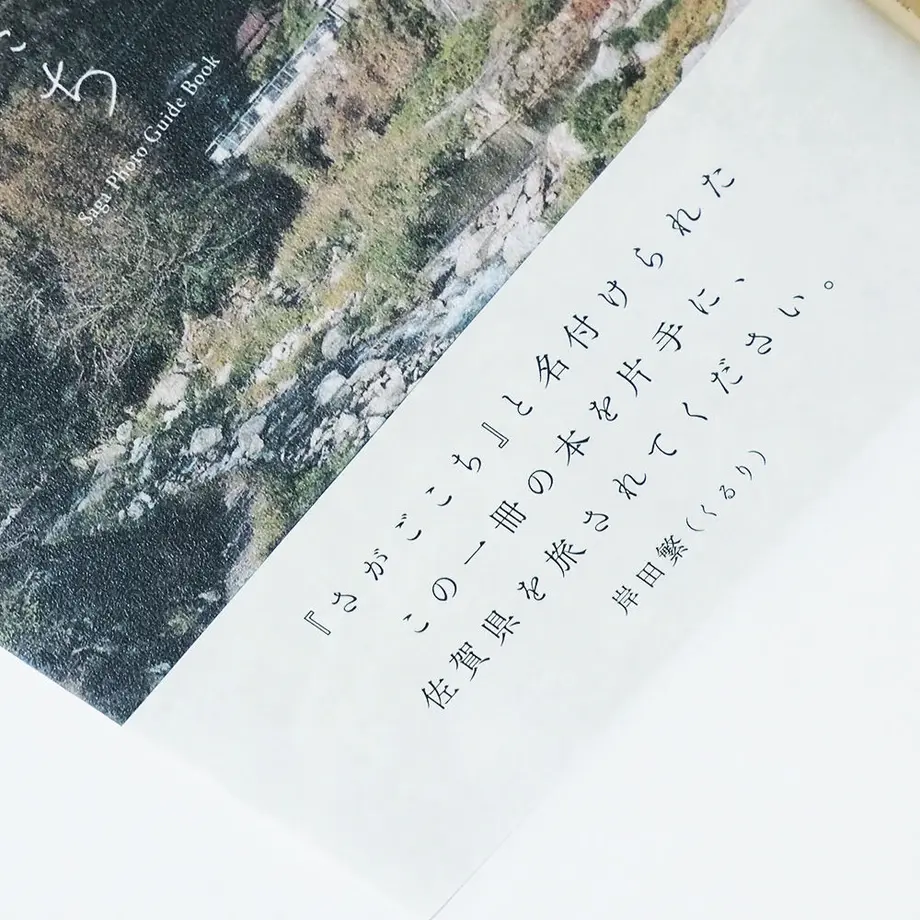 ち
Saga Photo Guide Book
『さがごこち』と名付けられた
この一冊の本を片手に、
佐賀県を旅されてください。
岸田繁(くるり)